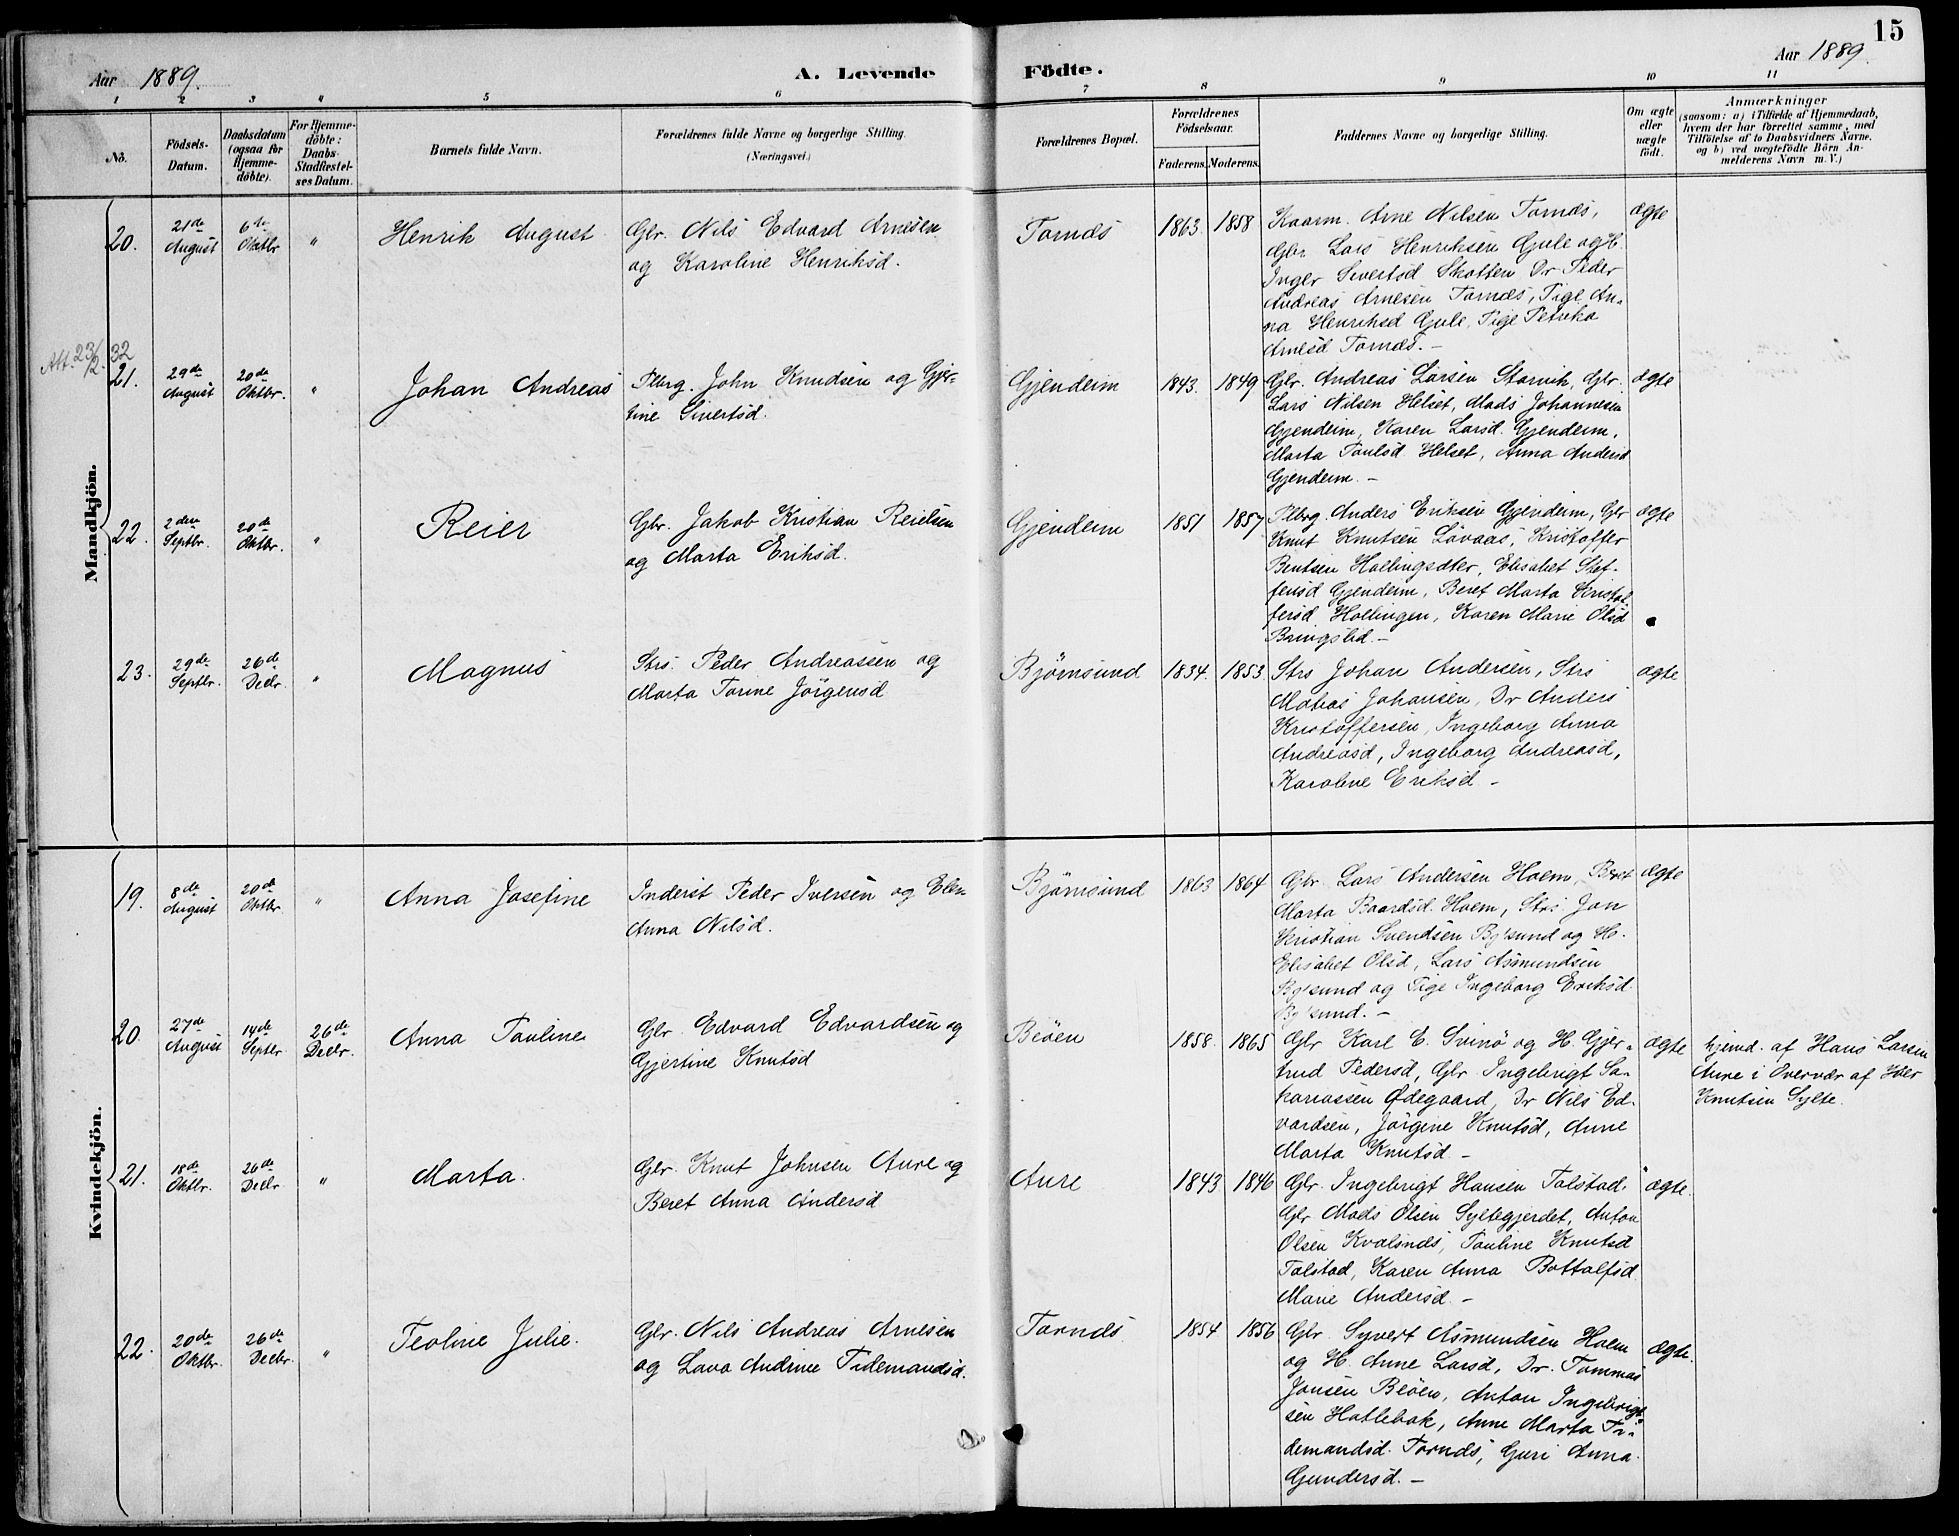 15
Aar 1889.
A. Levende
Födte.
Aar 1889.
1 2 3 " 5 6 7 8 9 10 11
No.
Födsels-
Datum.
Daabsdatum
(ogsaa for
Hjemme-
döbte).
For Hjemme-
döbte:
Daabs-
Stadfæstel-
ses Datum.
Barnets fulde Navn.
Forældrenes fulde Navne og borgerlige Stilling.
(Næringsvei.)
Forældrenes Bopæl.
Forældrenes
Födselsaar.
Faderens. Moderens.
Faddernes Navne og borgerlige Stilling.
Om ægte
eller
uægte
födt.
Anmærkninger
(saasom: a) i Tilfælde af Hjemmedaab,
hvem der har forrettet samme, med
Tilföielse af to Daabsvidners Navne.
og b) ved uægtefödte Börn An-
melderens Navn m. V.)
Mandkjön.
20.
21de
August
6te
Oktbr
"
Henrik August
Gbr. Nils Edvard Arnesen
og Karoline Henriksd.
Tornæs
1863. 1858
Kaarm. Arne Nilsen Tornæs,
Gbr Lars Henriksen Gule og H.
Inger Sivertsd Skotten Dr Peder
Andreas Arnesen Tornæs, Pige An-
na Henriksd Gule, Pige Petrika
Arnesd Tornæs. –
ægte
Att. 23/2. 32
21.
29de
August
20de
Oktbr.
"
Johan Andreas
Plbrg. John Knudsen og Gjer-
tine Sivertsd.
Gjendeim
1843. 1849
Gbr. Andreas Larsen Starvik, Gbr.
Lars Nilsen Helset, Mads Johannesen
Gjendeim, Karen Larsd. Gjendeim,
Marta Paulsd Helset, Anna Andersd
Gjendeim. –
ægte
22.
2den
Septbr.
20de
Oktbr.
"
Reier
Gbr. Jakob Kristian Reielsen
og Marta Eriksd.
Gjendeim
1851 1857
Plbrg. Anders Eriksen Gjendeim, Gbr
Knut Knutsen Lövaas, Kristoffer
Bentsen Hollingsæter, Elisabet Stef-
fensd Gjendeim, Beret Marta Kristof-
fersd. Hollingen, Karen Marie Olsd
Bringslid. –
ægte
23.
29de
Septbr.
26de
Decbr.
"
Magnus
Strs. Peder Andreassen og
Marta Torine Jörgensd
Bjørnsund
1834. 1853.
Strs Johan Andersen, Strs
Matias Johansen, Dr Anders
Kristoffersen, Ingeborg Anna
Andreasd, Ingeborg Andreasd,
Karoline Eriksd –
ægte
Kvindekjön.
19.
8de
August
20de
Oktbr.
"
Anna Josefine
Inderst Peder Iversen og Elen
Anna Nilsd.
Bjørnsund
1863 1864
Gbr. Lars Andersen Hoem, Beret
Marta Baardsd. Hoem, Strs. Jon
Kristian Svendsen Bj'sund og H.
Elisabet Olsd, Lars Asmundsen
Bj'sund og Pige Ingeborg Eriksd
Bj'sund. –
ægte
20.
27de
August
14de
Septbr
26de
Decbr.
Anna Pauline
Gbr. Edvard Edvardsen og
Gjertine Knutsd
Beöen
1858. 1865
Gbr Karl E. Svinö og H. Gjer-
trud Pedersd, Gbr. Ingebrigt Sa-
kariassen Ødegaard, Dr Nils Ed-
vardsen, Jörgine Knutsd, Anne
Marta Knutsd –
ægte
hjemd. af Hans Larsen
Aure i Overvær af Iver
Knutsen Sylte.
21.
18de
Oktbr.
26de
Decbr
"
Marta.
Gbr. Knut Johnsen Aure og
Beret Anna Andersd
Aure
1843 1846
Gbr. Ingebrigt Hansen Tolstad.
Gbr Mads Olsen Syltegjerdet, Anton
Olsen Kvalsnæs, Pauline Knutsd
Tolstad, Karen Anna Bottolfsd
Marie Andersd. –
ægte.
22.
20de
Oktbr.
26de
Decbr.
"
Teoline Julie.
Gbr. Nils Andreas Arnesen
og Lava Andrine Tidemandsd.
Tornæs
1854 1856
Gbr Syvert Asmundsen Hoem
og H. Anne Larsd, Dr. Tommas
Jonsen Beöen, Anton Ingebrigt-
sen Hatlebak, Anne Marta Ti-
demandsd. Tornæs, Guri Anna
Gundersd. –
ægte.